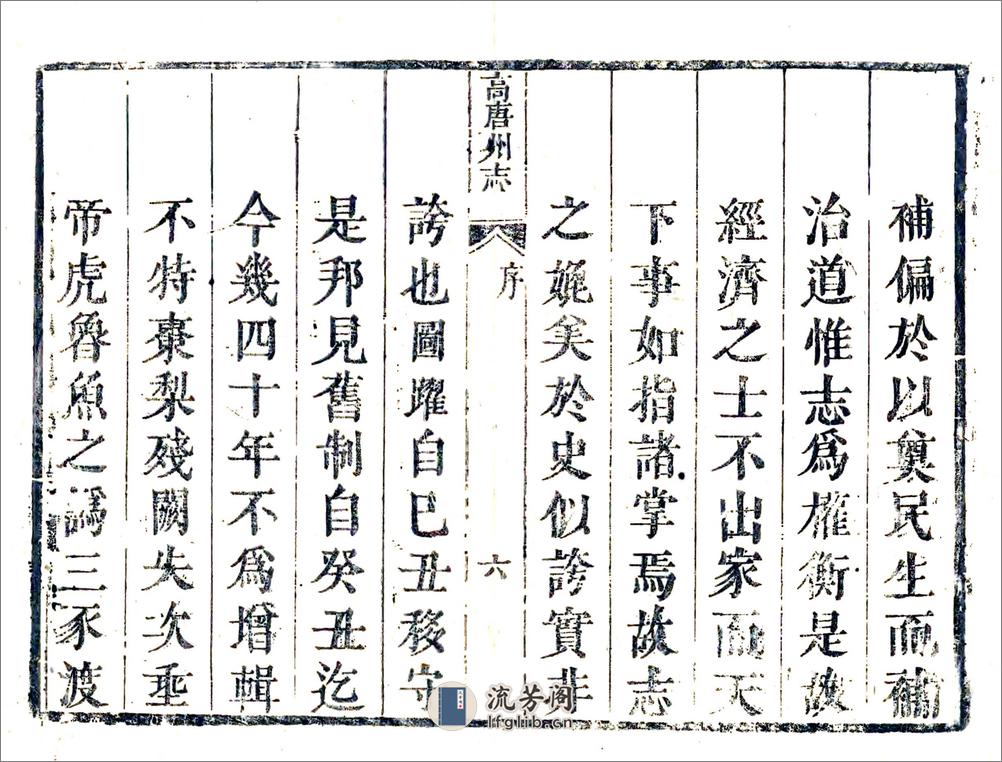 補偏於以奠民生而補
治道惟志爲權衡是故
經濟之士不出家而天
下事如指諸掌焉故志
之媲美於史似誇實非
高唐州志
序
六
誇也圖躍自巳丑移守
是邦見舊制自癸丑迄
今幾四十年不爲增輯
不特棗梨殘闕失次亟
帝虎魯魚之譌三豕渡
流芳阁
lfglib.cn